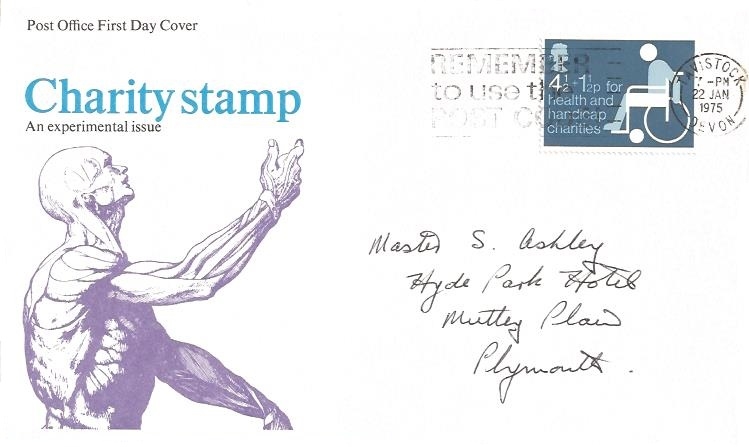 Post Office First Day Cover
Charity stamp
An experimental issue
REMEMBER
to use the
POST CODE
4½+1½p for
health and
handicap
charities
TAVISTOCK
-PM
22 JAN
1975
DEVON
Master S. Ashley
Hyde Park Hotel
Mutley Plain
Plymouth.